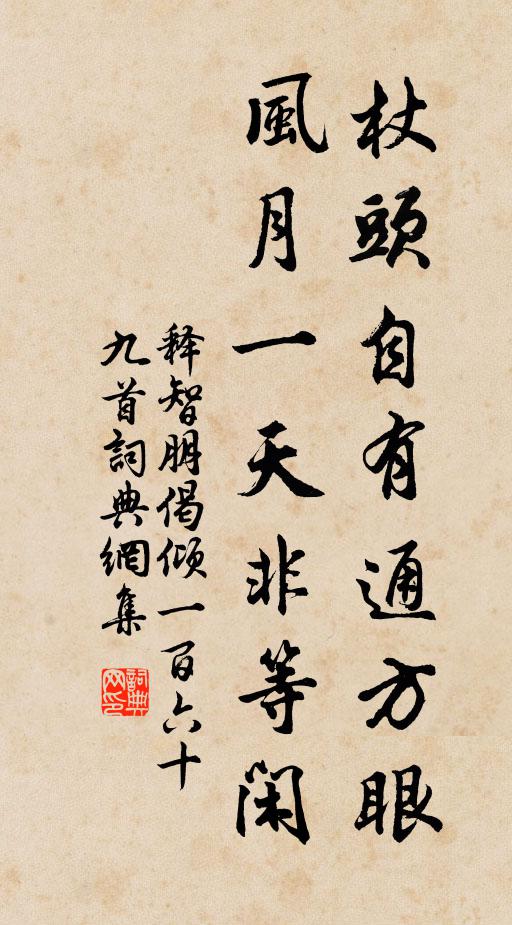 杖頭自有通方眼
風月一天非等閑
释智朋偈倾一百六十
九首詞典網集
詞典网印